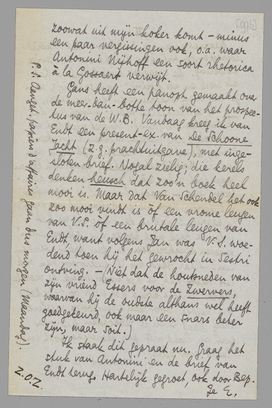 zoowat uit mijn koker komt – minus
een paar vergissingen ook, o.a. waar
Antonini Nijhoff een soort rhetorica
à la Gossaert verwijt.
Jans heeft een panopt. gemaakt over
de meer-dan-botte toon van het prospec-
tus van de W.B. Vandaag kreeg ik van
Endt een present-ex. van De Schoone
Jacht (z.g. prachtuitgave), met inge-
sloten brief. Nogal zielig; die kerels
denken heusch dat zoo'n boek heel
mooi is. Maar dat Van Schendel het ook
zoo mooi vindt is òf een vrome leugen
van V.S. òf een brutale leugen van
Endt want volgens Jan was V.S. woe-
dend toen hij het gewrocht in Sestri
ontving. – Niet dat de houtsneden van
zijn vriend Essers voor de Zwervers,
waarvan hij de oudste althans wel heeft
goedgekeurd, ook maar een snars beter
zijn, maar soit.)
Ik staak dit gepraat nu. Graag het
stuk van Antonini en de brief van
Endt terug. Hartelijk gegroet ook door Bep.
je E.
P.S. Aanget. papiers d'affaires gaan dus morgen (Maandag)
z.o.z.